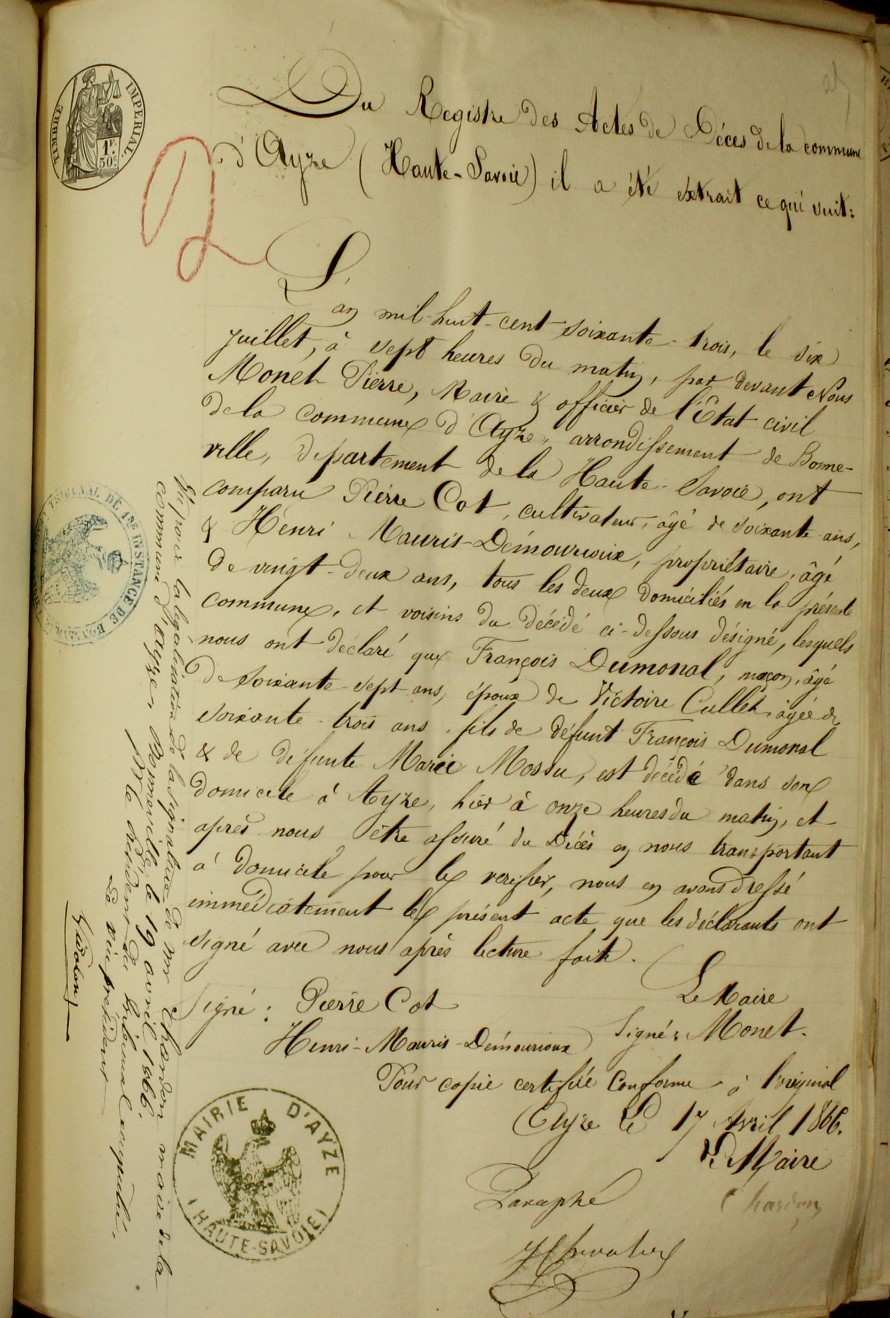 TIMBRE IMPERIAL
1F.
50C.
Du Registre des Actes de Déces de la commune
d'Ayze (Haute-Savoie) il a été extrait ce qui suit:
L'an mil-huit-cent-soixante-trois, le six
juillet, à sept heures du matin, par devant Nous
Monet Pierre, Maire & officier de l'Etat civil
de la commune d'Ayze, arrondissement de Bonne-
ville, département de la Haute-Savoie, ont
comparu Pierre Cot, cultivateur, âgé de soixante ans,
& Henri Mauris-Démourioux, propriétaire, âgé
de vingt-deux ans, tous les deux domiciliés en la présente
commune, et voisins du décédé ci-dessus désigné, lesquels
nous ont déclaré que François Dumonal, maçon, âgé
de soixante-sept ans, époux de Victoire Cullet âgée de
soixante-trois ans, fils de défunt François Dumonal
& de défunte Marie Mossu, est décédé dans son
domicile à Ayze, hier à onze heures du matin, et
après nous être assuré du Décès en nous transportant
à domicile pour le vérifier, nous en avons dressé
immédiatement le présent acte que les déclarants ont
signé avec nous après lecture faite.
Signé: Pierre Cot
Henri-Mauris-Démourioux
Le Maire
Signé: Monet.
Pour copie certifiée conforme à l'original
Ayze le 17 Avril 1866.
Le Maire
Chardon
Paraphé
MAIRIE D'AYZE
(HAUTE-SAVOIE)
TRIBUNAL DE 1re INSTANCE DE
Vu pour la légalisation de la signature de Mr Chardon maire de la
commune d'Ayze, Bonneville le 19 avril 1866.
Pr le Président du tribunal
Le vice président